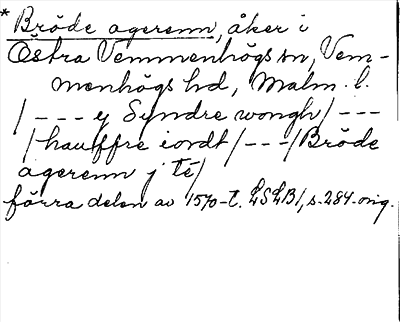 * Bröde agerenn, åker i
Östra Vemmenhögs sn, Vem-
menhögs hd, Malm. l.
/ - - - ey Syndre wongh / - - -
/ hauffre iordt / - - - / Bröde
agerenn j té /
förra delen av 1570-t. LSLB1, s. 284. orig.